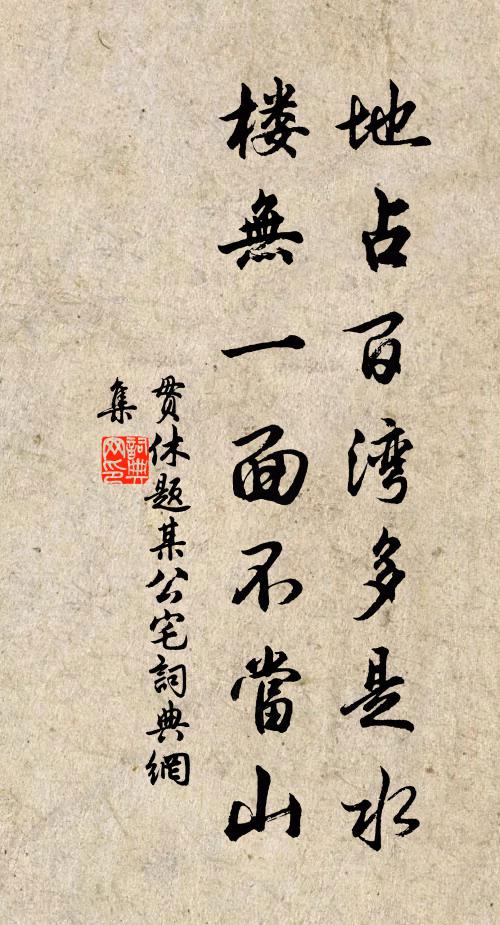 地占百湾多是水
楼無一面不當山
貫休题某公宅詞典網
集
詞典
网印